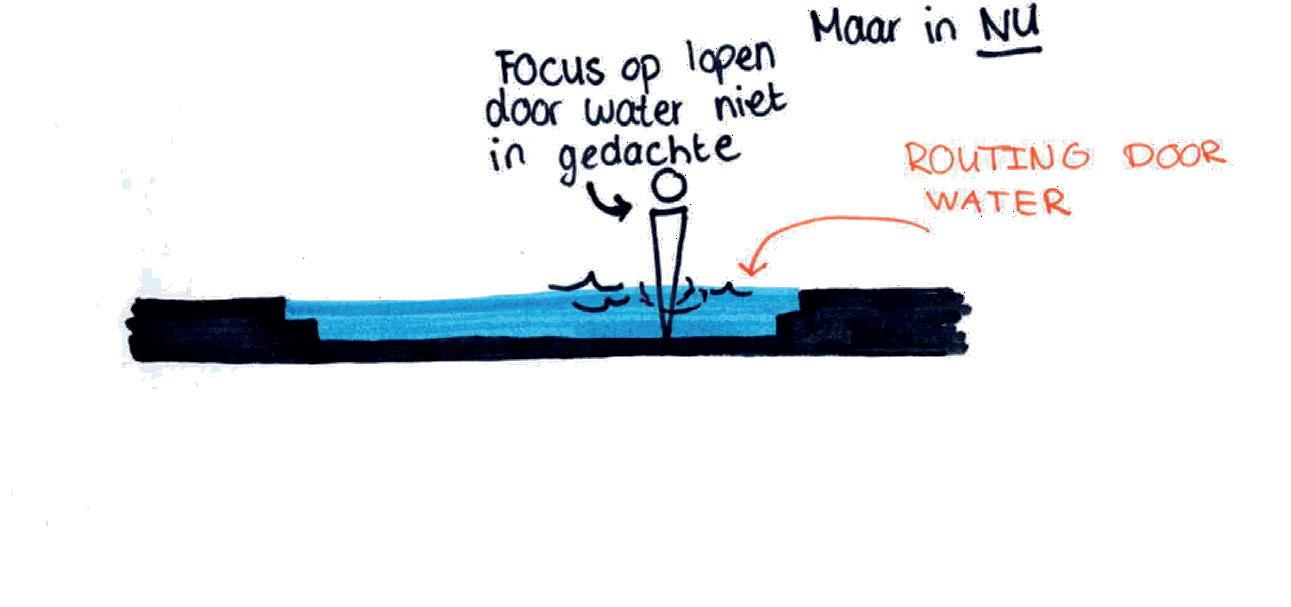 Focus op lopen
door water niet
in gedachte
Maar in NU
ROUTING DOOR
WATER